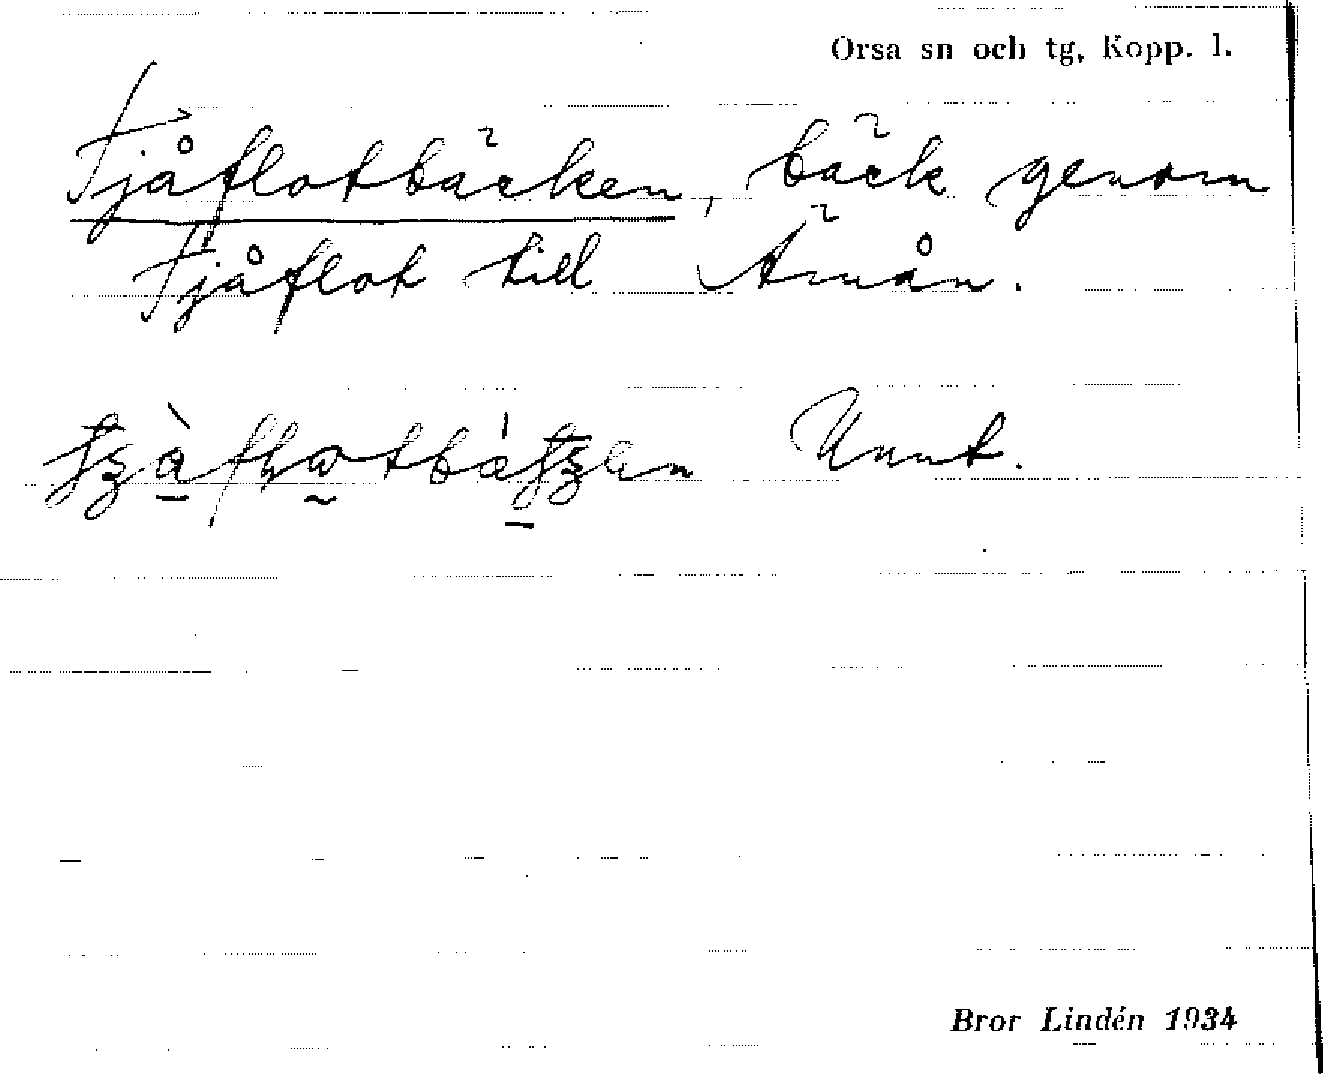 Orsa sn och tg, Kopp. l.
Tjåflotbäcken, bäck genom
Tjåflot till Ämån.
Unnt.
Bror Lindén 1934